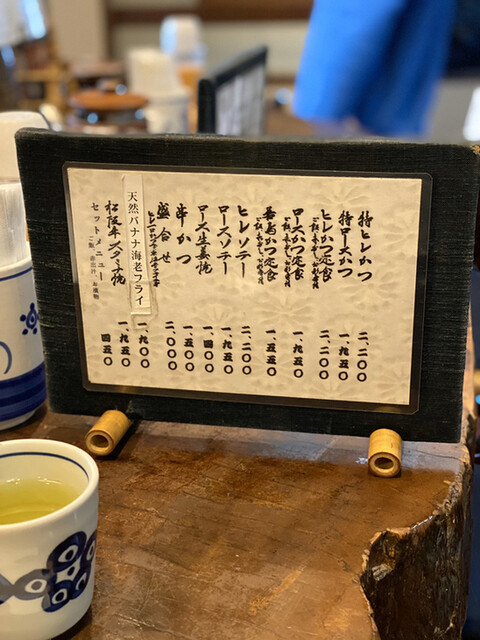 特ヒレかつ 二、二〇〇
特ロースかつ 一、九五〇
ヒレかつ定食 二、二〇〇
ロースかつ定食 一、九五〇
若鶏かつ定食 一、五五〇
ヒレソテー 二、二〇〇
ロースソテー 一、九五〇
ロース生姜焼 一、四〇〇
串かつ 一、五〇〇
盛合せ 二、〇〇〇
天然バナナ海老フライ 一、九〇〇
松阪牛スタミナ焼 一、九五〇
セットメニュー 四五〇
ご飯、赤出汁、お漬物